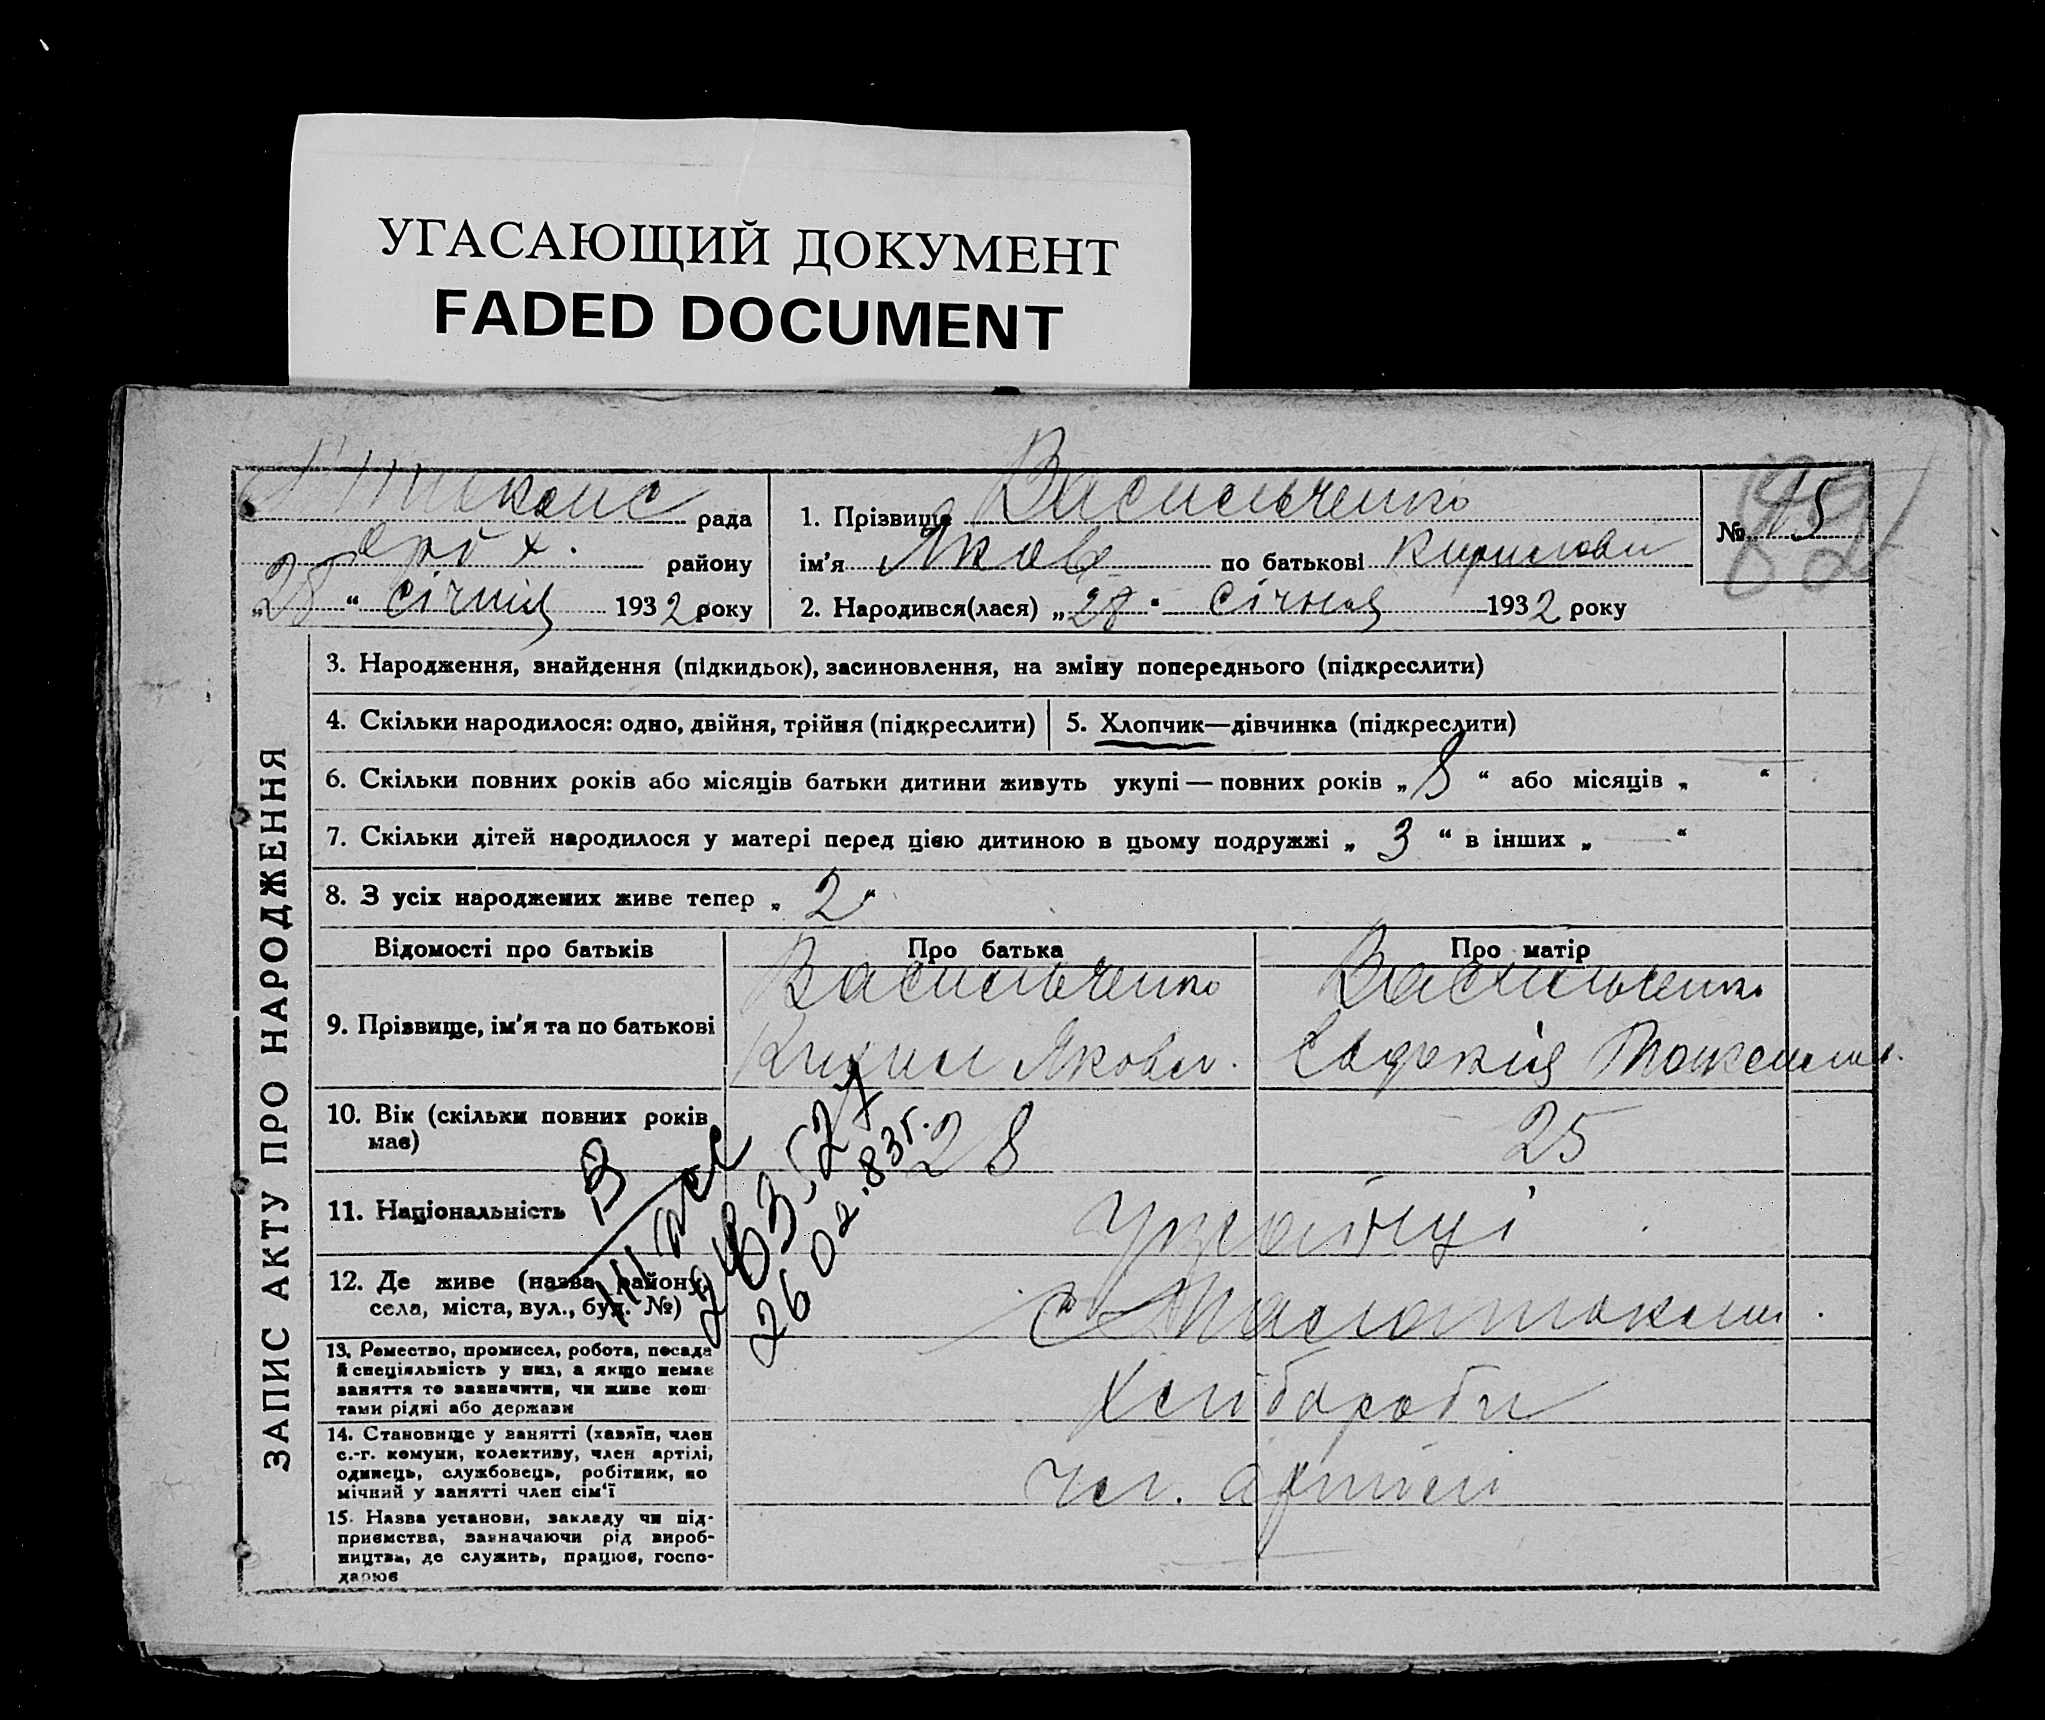 УГАСАЮЩИЙ ДОКУМЕНТ
FADED DOCUMENT
рада
району
„28“ січня 1932 року
1. Прізвище Васильченко
ім'я Яков по батькові Кирилови
2. Народився(лася) „28“ січня 1932 року
№ 15
ЗАПИС АКТУ ПРО НАРОДЖЕННЯ
3. Народження, знайдення (підкидьок), засиновлення, на зміну попереднього (підкреслити)
4. Скільки народилося: одно, двійня, трійня (підкреслити)
5. Хлопчик—дівчинка (підкреслити)
6. Скільки повних років або місяців батьки дитини живуть укупі — повних років „8“ або місяців „ — “
7. Скільки дітей народилося у матері перед цією дитиною в цьому подружжі „3“ в інших „ — “
8. З усіх народжених живе тепер „2“
Відомості про батьків Про батька Про матір
9. Прізвище, ім'я та по батькові
Васильченко
Кирил Яковл.
Васильченко
Евдокія
10. Вік (скільки повних років
має)
28
25
11. Національність
Українці
12. Де живе (назва району,
села, міста, вул., буд. №)
с.
13. Ремество, промисел, робота, посада
й спеціяльність у них, а якщо немає
заняття то зазначити, чи живе кош-
тами рідні або держави
Хлібороби
14. Становище у занятті (хазяїн, член
с.-г. комуни, колективу, член артілі,
одинець, службовець, робітник, по
мічний у занятті член сім'ї
чл. артілі
15. Назва установи, закладу чи під-
приємства, зазначаючи рід вироб-
ництва, де служить, працює, госпо-
дарює
26 02.83г.